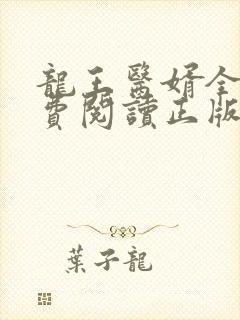 龍王醫婿全
費閱讀正版
葉子龍